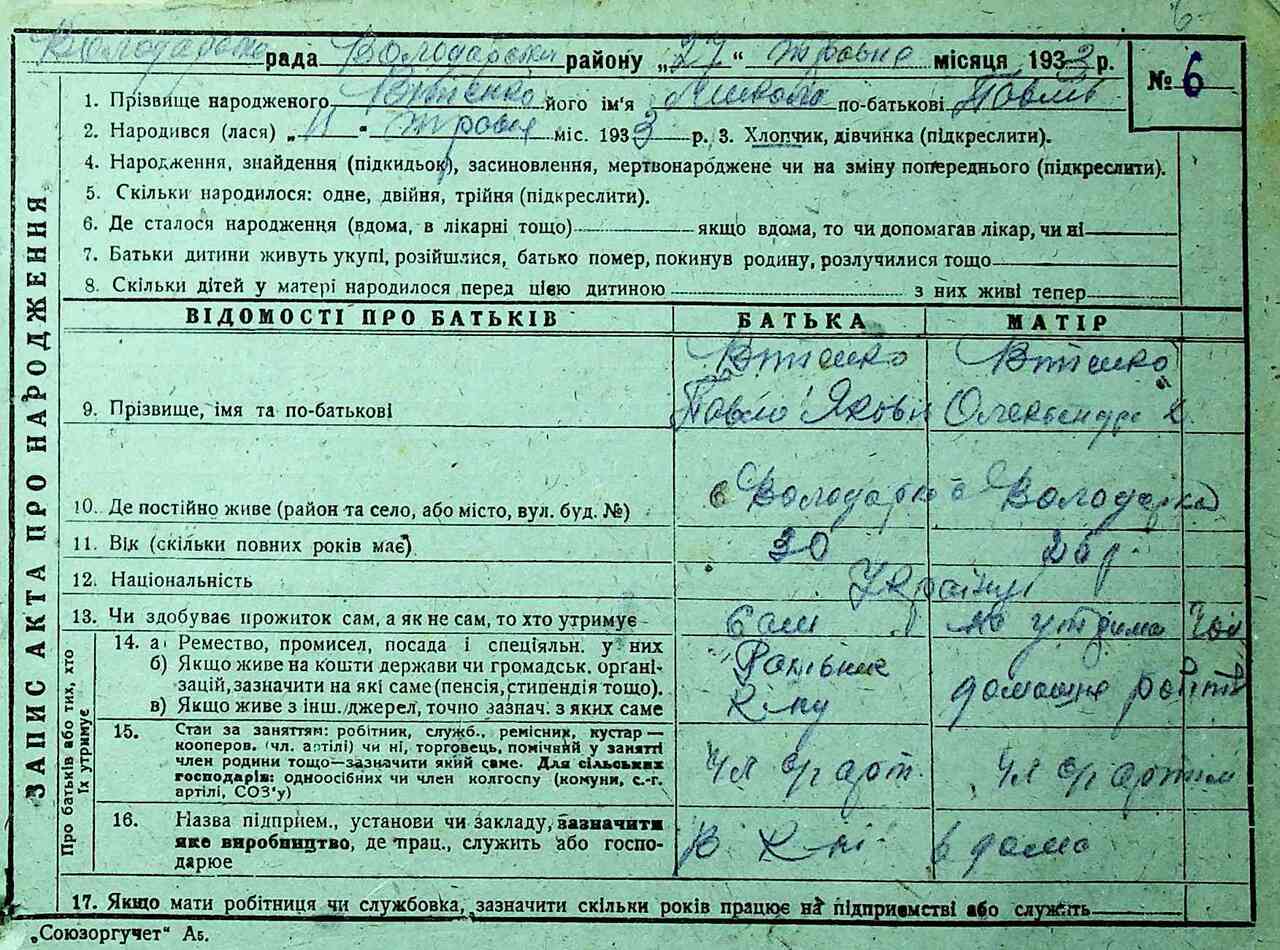 6
Володарська рада Володарський району „27“ травня місяця 1933 р.
№ 6
1. Прізвище народженого його ім'я Микола по-батькові Павлів
2. Народився (лася) „11“ травня міс. 1933 р. 3. Хлопчик, дівчинка (підкреслити).
4. Народження, знайдення (підкидьок), засиновлення, мертвонароджене чи на зміну попереднього (підкреслити).
5. Скільки народилося: одне, двійня, трійня (підкреслити).
6. Де сталося народження (вдома, в лікарні тощо) якщо вдома, то чи допомагав лікар, чи ні
7. Батьки дитини живуть укупі, розійшлися, батько помер, покинув родину, розлучилися тощо
8. Скільки дітей у матері народилося перед цією дитиною з них живі тепер
ВІДОМОСТІ ПРО БАТЬКІВ БАТЬКА МАТІР
9. Прізвище, імя та по-батькові Павло Яковів
10. Де постійно живе (район та село, або місто, вул. буд. №) с Володарка с Володарка
11. Вік (скільки повних років має) 30 26 р.
12. Національність Українці
13. Чи здобуває прожиток сам, а як не сам, то хто утримує Сам на утрима чол
14. а) Ремество, промисел, посада і спеціяльн. у них
б) Якщо живе на кошти держави чи громадськ. організацій, зазначити на які саме (пенсія, стипендія тощо).
в) Якщо живе з інш. джерел, точно зазнач. з яких саме
домашнє
15. Стан за заняттям: робітник, служб., ремісник, кустар—
кооперов. (чл. артілі) чи ні, торговець, помічний у занятті
член родини тощо—зазначити який саме. Для сільських
господарів: одноосібних чи член колгоспу (комуни, с.-г.
артілі, СОЗ'у)
чл с/г арт. чл с/г артілі
16. Назва підприєм., установи чи закладу, зазначити
яке виробництво, де прац., служить або господарює
в дома
17. Якщо мати робітниця чи службовка, зазначити скільки років працює на підприємстві або служить
ЗАПИС АКТА ПРО НАРОДЖЕННЯ
Про батьків або тих, хто їх утримує
„Союзоргучет“ А5.